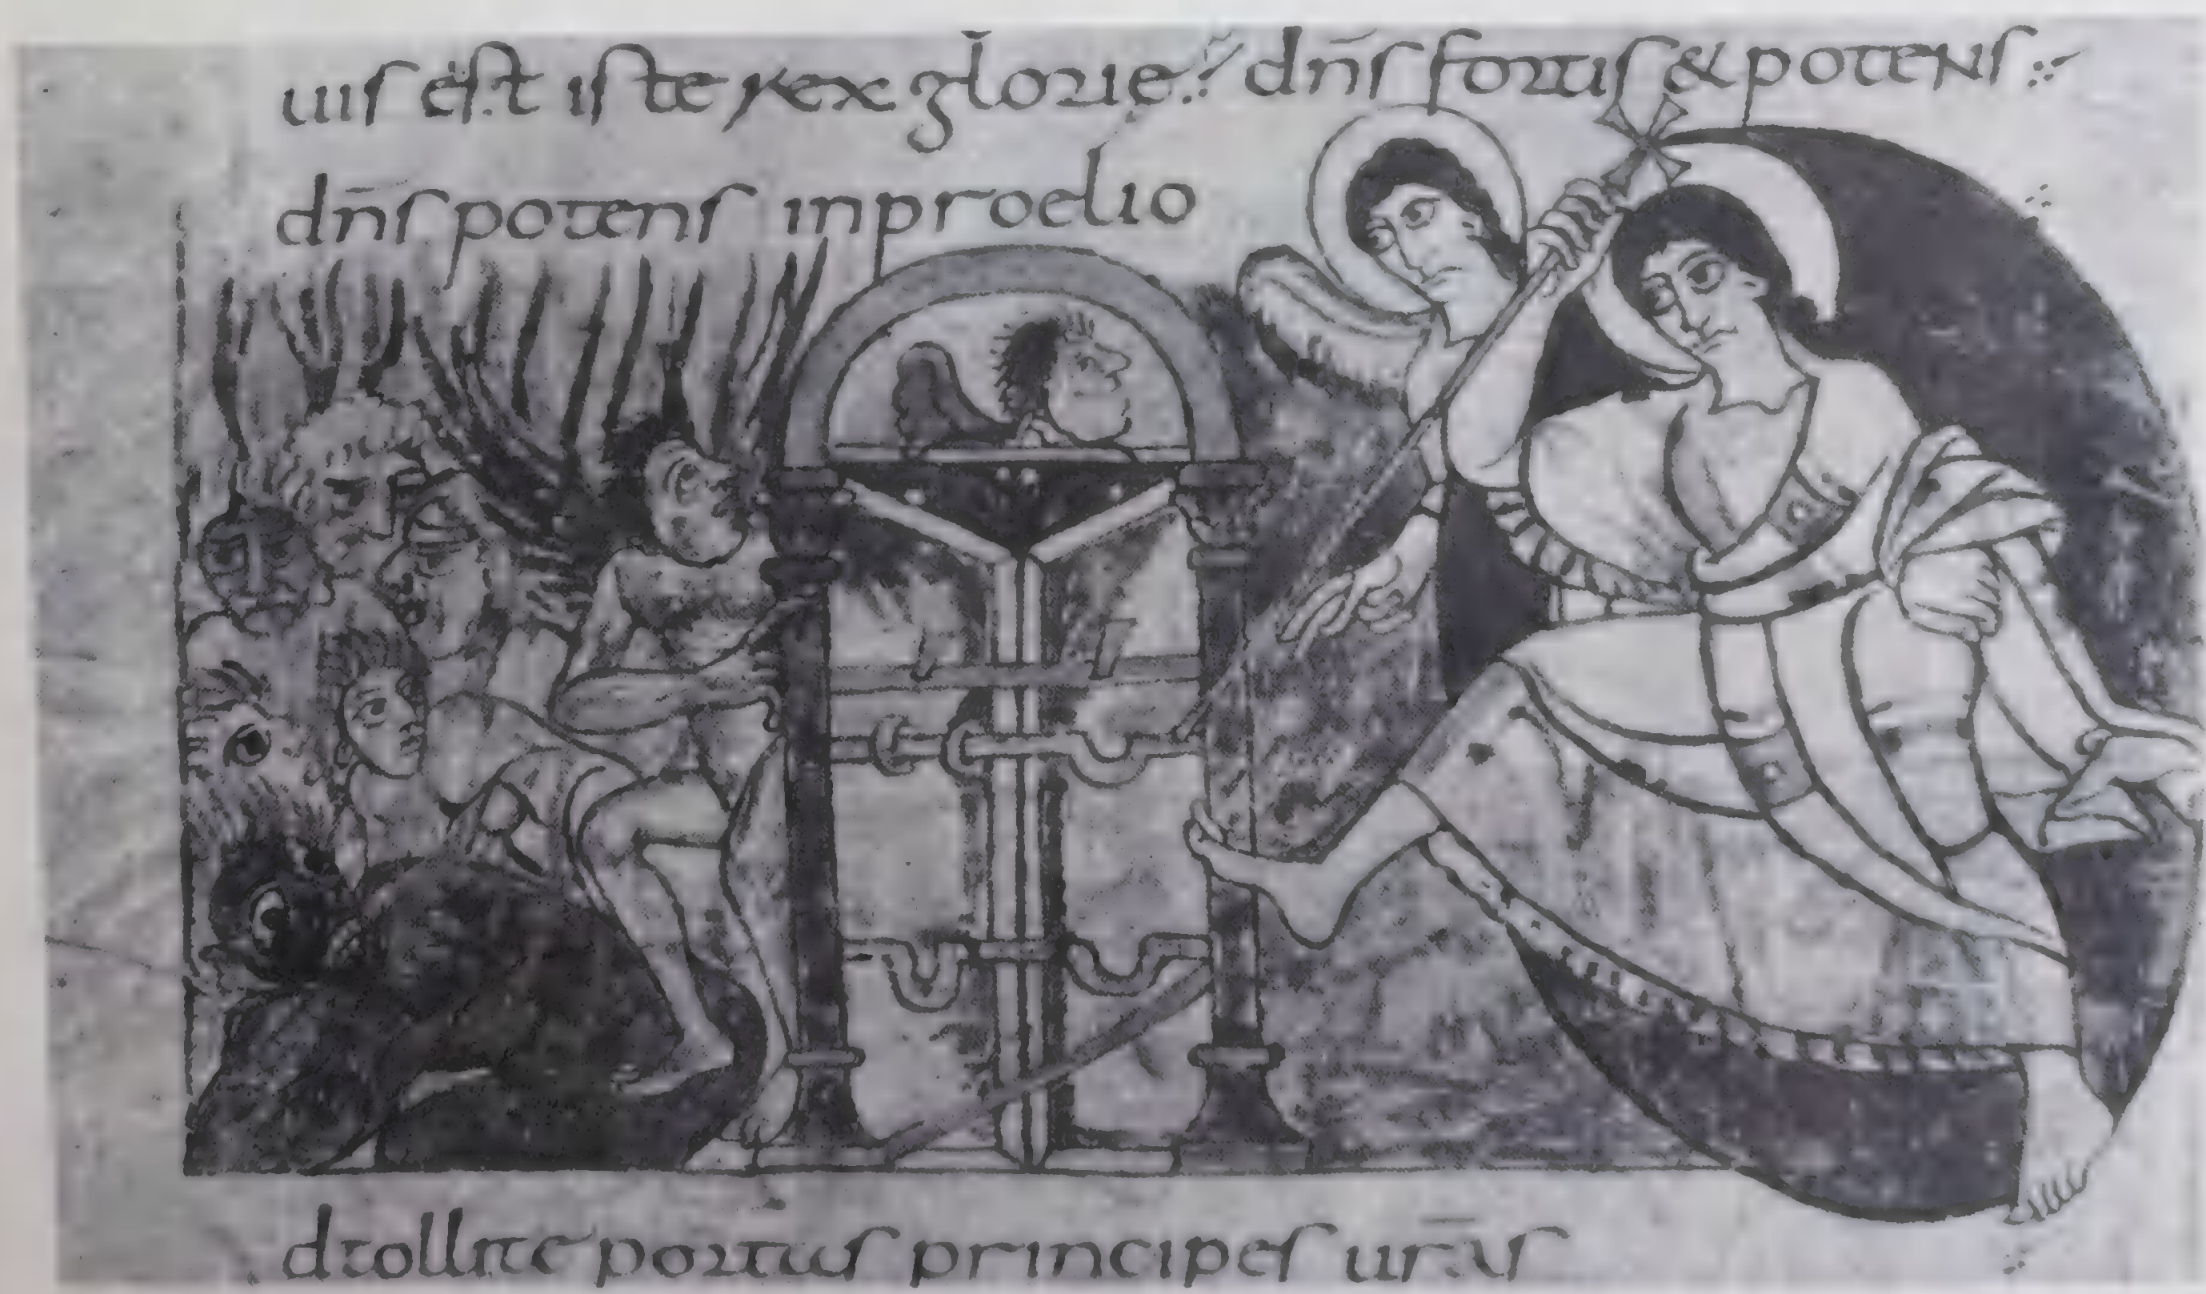 uis est iste rex glorie: dn̄s fortis & potens:
dn̄s potens inproelio
dtollite portas principes ur̄as